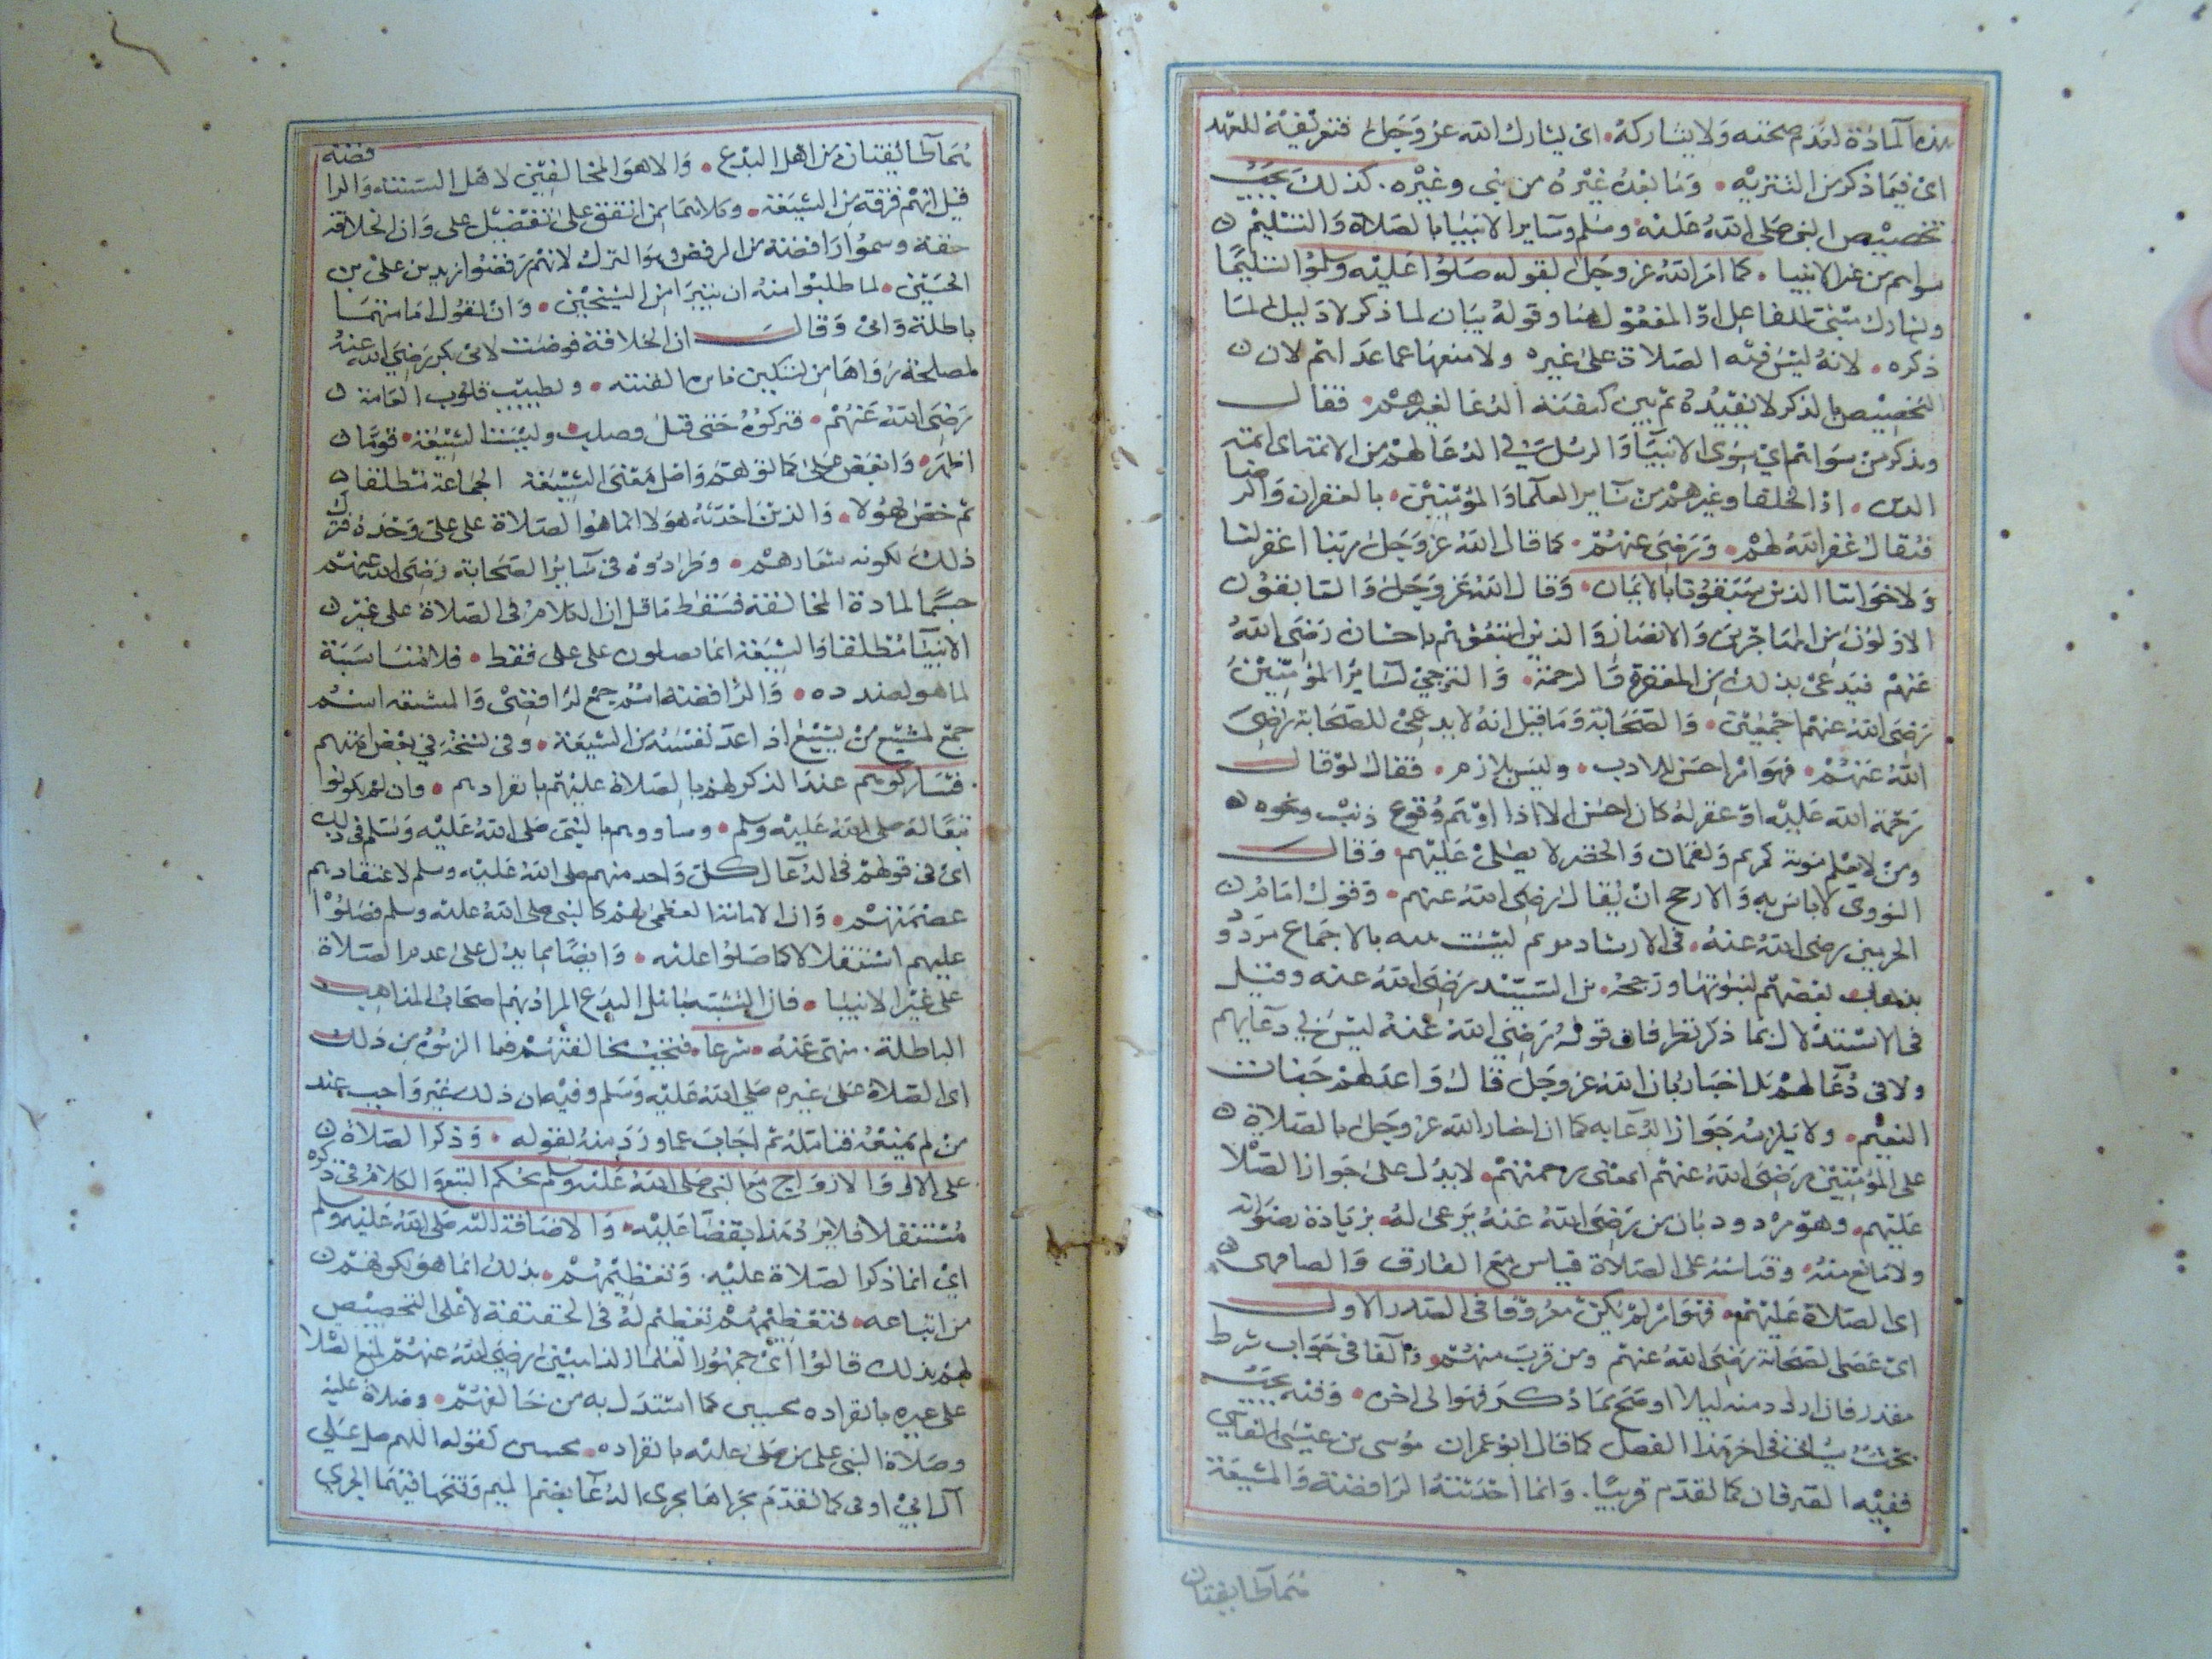 هذه المادة لعدم صحته ولا يشاركه اى يشارك الله عز وجل فتعريفه للعهد
اى فيما ذكر من التنزيه وما بعده غيره من نبي وغيره كذلك يجب
تخصيص النبي صلى الله عليه وسلم وساير الانبيا بالصلاة والتسليم
سواهم من غير الانبيا كما امر الله عز وجل بقوله صلوا عليه وسلموا تسليما
ويشارك مبني للفاعل او المفعول هنا وقوله بيان لما ذكر لا دليل لما
ذكره لانه ليس فيه الصلاة على غيره ولا منعها عما عداهم لان
التخصيص بالذكر لا يفيده ثم بين كيفية الدعا لغيرهم فقال
ويذكر من سواهم اي سوى الانبيا والرسل في الدعا لهم من الائمة اى ائمة
الدين اذ الخلفا وغيرهم من ساير العلما والمؤمنين بالغفران والرضا
فيقال غفر الله لهم ورضي عنهم كما قال الله عز وجل ربنا اغفر لنا
ولاخواننا الذين سبقونا بالايمان وقال الله عز وجل والسابقون
الاولون من المهاجرين والانصار والذين اتبعوهم باحسان رضي الله
عنهم فيدعى بذلك من المغفرة والرحمة والترجي لساير المؤمنين
رضي الله عنهم اجمعين والصحابة وما قيل انه لا يدعى للصحابة برضي
الله عنهم فهو امر احسن للادب وليس بلازم فقال لو قال
رحمة الله عليه او غفر له كان احسن الا اذا اوهم وقوع ذنب ونحوه
ومن لا نعلم نبوته كمريم ولقمان والخضر لا يصلى عليهم وقال
النووي لا باس به والارجح ان يقال رضي الله عنهم وقول امام
الحرمين رضي الله عنه في الارشاد مريم ليست نبيه بالاجماع مردود
بذهاب بعضهم لنبوتها ورجحه من السيد رضي الله عنه وقيل
في الاستدلال بما ذكر نظر فان قوله رضي الله عنه ليس في دعايهم
ولا في دعا لهم بل اخبار بان الله عز وجل قال واعد لهم جنات
النعيم ولا يلزمه جواز الدعا به كما ان اخبار الله عز وجل بالصلاة
على المؤمنين رضي الله عنهم بمعنى رحمتهم لا يدل على جواز الصلا
عليهم وهو مردود بان من رضي الله عنه يدعى له بزيادة رضوانه
ولا مانع منه وقياسه على الصلاة قياس مع الفارق وايضا فهى
اى الصلاة عليهم فهو امر لم يكن معروفا في الصدر الاول
اى عصر الصحابة رضي الله عنهم ومن قرب منهم والفا في جواب شرط
مقدر فان اردت دليلا اوضح مما ذكر فهو الى اخره وفيه بحث
بحث سياتى في اخر هذا الفصل كما قال ابو عمران موسى بن عيسى الفاسي
ففيه الصرفان كما تقدم قريبا وانما احدثته الرافضة والمتشيعة
هما طايفتان
هما طايفتان من اهل البدع والاهوا المخالفين لاهل السنة والرافضة
قيل انهم فرقة من الشيعة وكلاهما من اتفق على تفضيل على وان الخلافة
حقه وسموا رافضة من الرفض وهو الترك لانهم رفضوا زيد بن علي بن
الحسين لما طلبوا منه ان يتبرا من الشيخين وان لقول امامتهما
باطلة وابى وقال ان الخلافة فوضت لابي بكر رضي الله عنه
لمصلحة رواها من تسكين نايرة الفتنة وتطييب قلوب العامة
رضي الله عنهم فتركوه حتى قتل وصلب وليست الشيعة قوما
اظهر وابغض على كما توهم واصل معنى الشيعة الجماعة مطلقا
ثم خص بهولا والذين احدثه هولا انما هو الصلاة على علي وحده فترك
ذلك لكونه شعارهم وطرادوه في ساير الصحابة رضي الله عنهم
حسما لمادة المخالفة فسقط ما قيل ان الكلام في الصلاة على غير
الانبيا مطلقا والشيعة انما يصلون على علي فقط فلا مناسبة
لما هو بصدده والرافضة اسم جمع لرافضي والمتشيعة اسم
جمع لمتشيع من يتشيع اذا عد نفسه من الشيعة وفي نسخة في بعض ائمتهم
فشاركوهم عند الذكر لهم بالصلاة عليهم بانفرادهم وان لم يكونوا
تبعا له صلى الله عليه وسلم وساووهم بالنبي صلى الله عليه وسلم في ذلك
اى في قولهم في الدعا لكل واحد منهم صلى الله عليه وسلم لاعتقادهم
عصمتهم وان الامامة العظمى لهم كالنبي صلى الله عليه وسلم فصلوا
عليهم استقلالا كما صلوا عليه وايضا مما يدل على عدم الصلاة
على غير الانبيا فان التشبه باهل البدع المراد بهم اصحاب المذاهب
الباطلة منهى عنه شرعا فتجب مخالفتهم فما الزموه من ذلك
اى الصلاة على غيره صلى الله عليه وسلم وفيه ان ذلك غير واجب عند
من لم يمنعه فتامله ثم اجاب عما ورد منه بقوله وذكر الصلاة
على الال والازواج مع النبي صلى الله عليه وسلم بحكم التبع والكلام في ذكره
مستقلا فلا يرد هذا نقضا عليه والاضافة اليه صلى الله عليه وسلم
اي انما ذكر الصلاة عليه وتعظيمهم بذلك انما هو لكونهم
من اتباعه فتعظيمهم تعظيم له في الحقيقة لا على التخصيص
لهم بذلك قالوا اي جمهور العلما الذاهبين رضي الله عنهم لمنع الصلا
على غيره بانفراده مجيبين كما استدل به من خالفهم وصلاة عليه
وصلاة النبي على من صلى عليه بانفراده بحسب كقوله اللهم صل على
آل ابي اوفى كما تقدم مجراها مجرى الدعا بضم الميم وفتحها فيهما الجرى